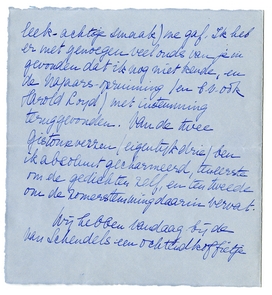 leek-achtige smaak) me gaf. Ik heb
er met genoegen veel ouds van je in
gevonden dat ik nog niet kende, en
de Najaars-opruiming (en b.v. ook
Harold Loyd) met instemming
teruggevonden. Van de twee
verzen (eigenlijk drie) ben
ik abrupt gecharmeerd, tweede
om de gedichten zelf, en ten tweede
om de zomerstemming daarin vervat.
Wij hebben vandaag bij de
van Schendels een ochtendkoffietje